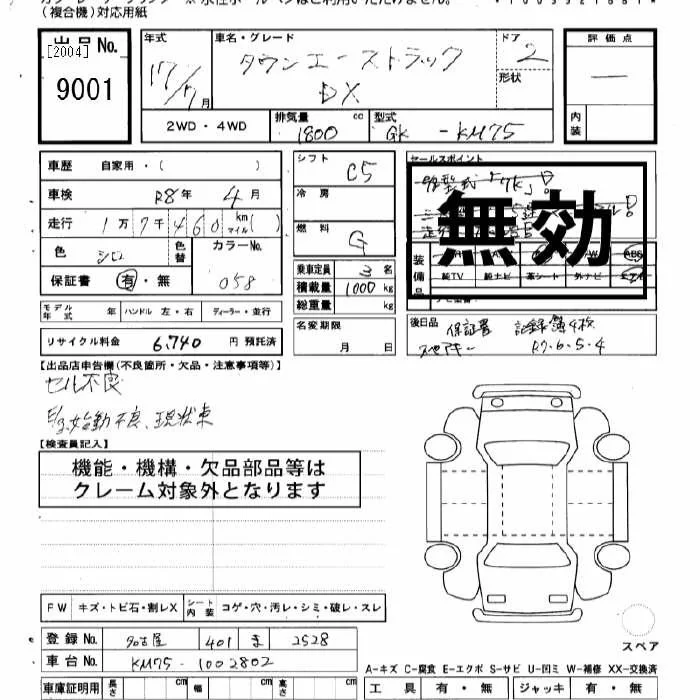 (複合機)対応用紙
出品 No.
[2004]
9001
年式
17/7月
車名・グレード
タウンエーストラック
DX
ドア
2
形状
評価点
—
内装
2WD・4WD
排気量
1800 cc
型式
GK - KM75
車歴 自家用・( )
車検 R8年 4月
走行 1万7千460 km マイル( )
色 シロ
色替
カラーNo.
058
保証書 有・無
モデル年式 年
ハンドル 左・右
ディーラー・並行
リサイクル料金 6,740 円 預託済
シフト
C5
冷房
燃料
G
乗車定員 3 名
積載量 1000 kg
総重量 kg
名変期限
月 日
セールスポイント
無効
装備品
純TV 純ナビ 革シート 外ナビ
後日品 保証書 記録簿4枚
R7.6.5.4
【出品店申告欄(不良箇所・欠品・注意事項等)】
セル不良
始動不良、現状車
【検査員記入】
機能・機構・欠品部品等は
クレーム対象外となります
FW キズ・トビ石・割レX
シート内装 コゲ・穴・汚レ・シミ・破レ・スレ
登録 No. 名古屋 401 ま 2528
車台 No. KM75-1002802
車庫証明用 長さ cm 幅 cm 高さ cm
スペア
A-キズ C-腐食 E-エクボ S-サビ U-凹ミ W-補修 XX-交換済
工具 有・無 ジャッキ 有・無